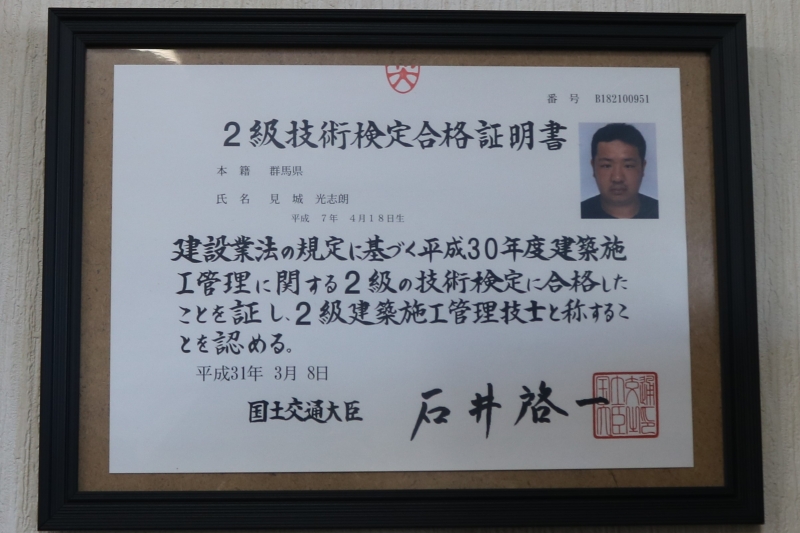 番 号 B182100951
2級技術検定合格証明書
本 籍 群馬県
氏 名 見 城 光志朗
平成 7年 4月18日生
建設業法の規定に基づく平成30年度建築施
工管理に関する2級の技術検定に合格した
ことを証し、2級建築施工管理技士と称するこ
とを認める。
平成31年 3月 8日
国土交通大臣 石井啓一